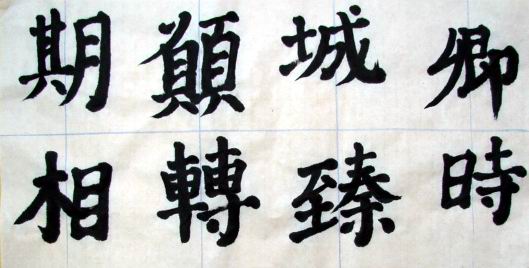 卿時
城臻
轉
期相